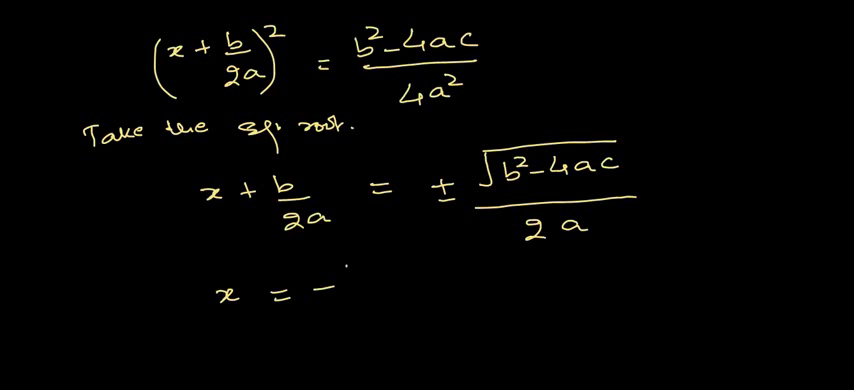 (x + b/2a)² = b² - 4ac / 4a²
Take the sq. root.
x + b/2a = ± √b² - 4ac / 2a
x = -